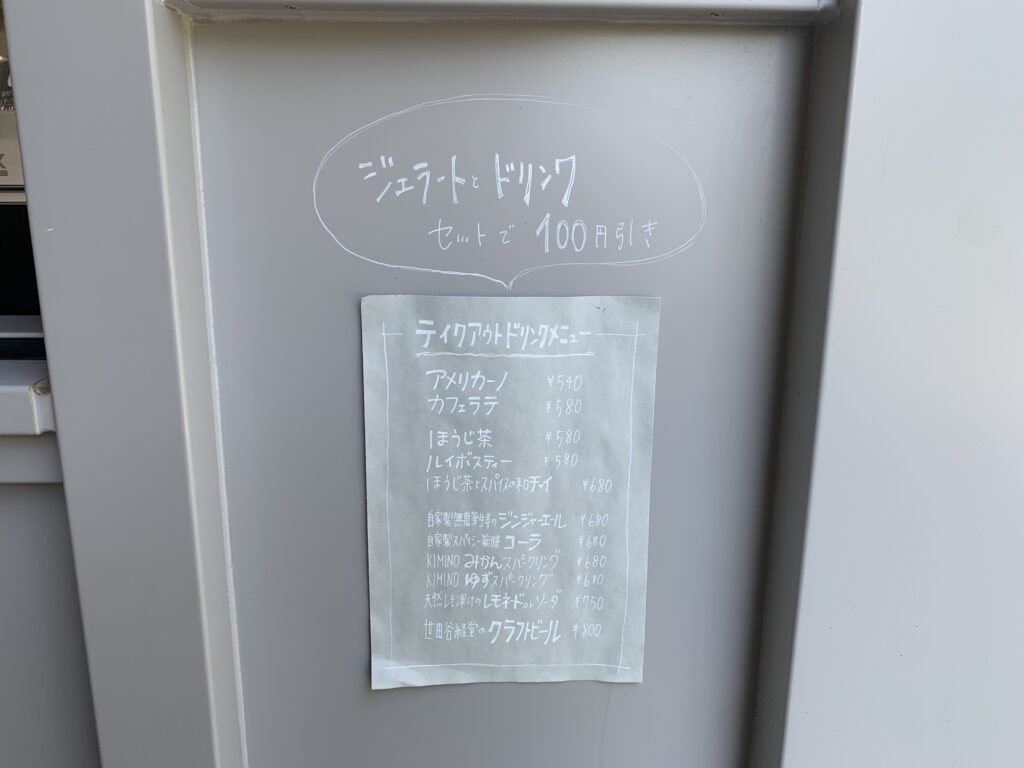 ジェラートと ドリンク
セットで 100円引き
テイクアウトドリンクメニュー
アメリカーノ ¥540
カフェラテ ¥580
ほうじ茶 ¥580
ルイボスティー ¥580
ほうじ茶とスパイスの和チャイ ¥680
自家製無農薬生姜のジンジャーエール ¥680
自家製スパイシー薬膳 コーラ ¥680
KIMINO みかんスパークリング ¥680
KIMINO ゆずスパークリング ¥680
天然レモン果汁の レモネードorソーダ ¥750
世田谷経堂の クラフトビール ¥800